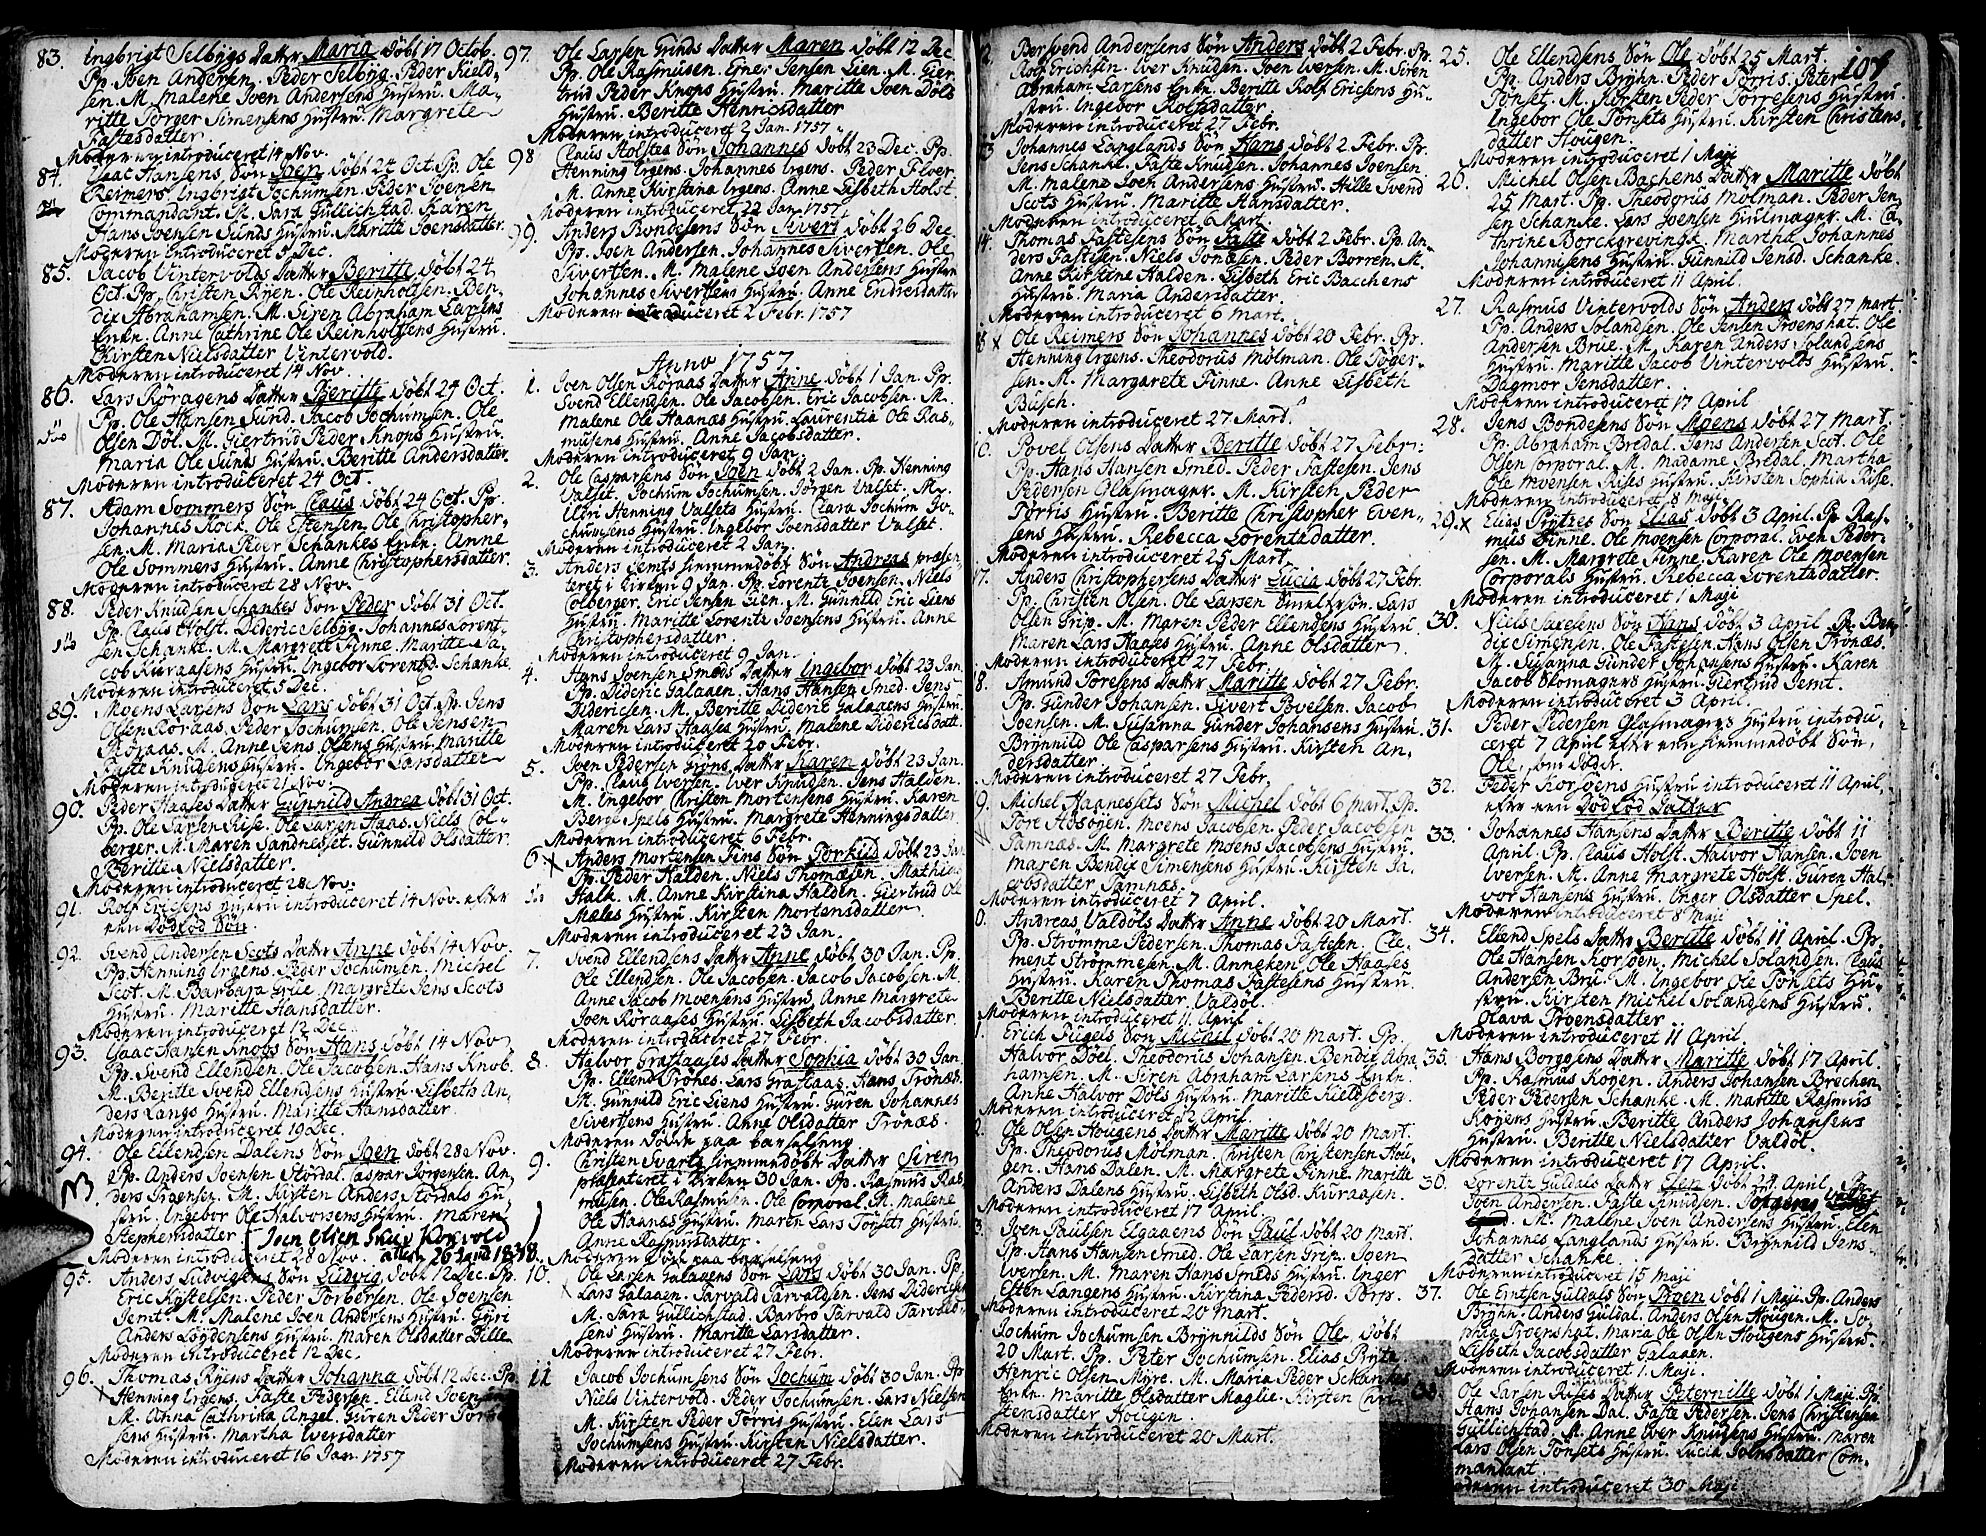 83. Ingbrigt Selbygs Datter Maria döbt 17 Octob.
Pp. Joen Andersen. Peder Selbyg. Peder Kield-
sen. M. Malene Joen Andersens Hustru. Ma-
ritte Törger Simensens Hustru. Margrete
Fastesdatter
Moderen introduceret 14 Nov.
84. Isaac Hansens Sön Joen döbt 24 Oct. Pp. Ole
Reimers. Ingbrigt Jochumsen. Peder Joensen
Commandant. M. Sara Gullichstad. Karen
Hans Joensen Sunds Hustru. Maritte Joensdatter.
Moderen introduceret 5 Dec.
85. Jacob Vintervolds Datter Beritte döbt 24
Oct. Pp. Christen Ryen. Ole Reinholtsen. Ben-
dix Abrahamsen. M. Siren Abraham Larsens
Enke. Anne Cathrine Ole Reinholtsens Hustru.
Kirsten Nielsdatter Vintervold.
Moderen introduceret 14 Nov.
86. Lars Röragens Datter Beritte döbt 24 Oct.
Pp. Ole Hansen Sund. Jacob Jochumsen. Ole
Olsen Döl. M. Giertrud Peder Knops Hustru.
Maria Ole Sunds Hustru. Beritte Andersdatter
Moderen introduceret 24 Oct.
87. Adam Sommers Sön Claus döbt 24 Oct. Pp.
Johannes Kock. Ole Estensen. Ole Christopher-
sen. M. Maria Peder Schankes Enke. Anne
Ole Sommers Hustru. Anne Christophersdatter.
Moderen introduceret 28 Nov.
88. Peder Knudsen Schankes Sön Peder döbt 31 Oct.
Pp. Claus Holst. Dideric Selbyg. Johannes Lorent-
sen Schanke. M. Margrete Finne. Maritte Ja-
cob Kuraasens Hustru. Ingebor Lorentsd. Schanke
Moderen introduceret 5 Dec.
89. Moens Larsens Sön Lars döbt 31 Oct. Pp. Jens
Olsen Röraas. Peder Jochumsen. Ole Jensen
Röraas. M. Anne Jens Olsens Hustru. Maritte
Faste Knudsens Hustru. Ingebor Larsdatter
Moderen introduceret 21 Nov.
90. Peder Haases Datter Gunnild Andrea döbt 31 Oct.
Pp. Ole Larsen Rise. Ole Larsen Haas. Niels Col-
berger. M. Maren Sandnesset. Gunnild Olsdatter.
Beritte Nielsdatter.
Moderen introduceret 28 Nov.
91. Rolf Ericsens Hustru introduceret 14 Nov. efter
een dödföd Sön.
92. Svend Andersen Scots Datter Anne döbt 14 Nov.
Pp. Henning Irgens. Peder Jochumsen. Michel
Scot. M. Barbara Grue. Margrete Jens Scots
Hustru. Maritte Hansdatter.
Moderen introduceret 12 Dec.
93. Isaac Hansen Knobs Sön Hans döbt 14 Nov
Pp. Svend Ellendsen. Ole Jacobsen. Hans Knob.
M. Beritte Svend Ellendsens Hustru. Lisbeth An-
ders Langs Hustru. Maritte Hansdatter.
Moderen introduceret 19 Dec.
94. Ole Ellendsen Dalens Sön Joen döbt 28 Nov.
Pp. Anders Joensen Stördal. Caspar Jörgensen. An-
ders Troensen. M. Kirsten Anders Stördals Hu-
stru. Ingebor Ole Halvorsens Hustru. Maren
Stephensdatter (Joen Olsen Korsvold
Moderen introduceret 28 Nov.
95. Anders Ludvigsens Sön Ludvig döbt 12 Dec. Pp.
Eric Kystelsen. Peder Torbersen. Ole Joensen
Jemt. M. Malene Joen Andersens Hustru. Gyri
Anders Löydensens Hustru. Maren Olsdatter Dille
Moderen introduceret 12 Dec.
96. Thomas Ryens Datter Johanna döbt 12 Dec. Pp.
Henning Irgens. Faste Pedersen. Ellend Joensen
M. Anna Cathrika Angel. Guren Peder Törris-
sens Hustru. Martha Iversdatter
Moderen introduceret 16 Jan. 1757
97. Ole Larsen Grinds Datter Maren döbt 12 Dec
Pp. Ole Rasmusen. Ejner Jensen Lien. M. Gier-
trud Peder Knops Hustru. Maritte Joen Döls
Hustru. Beritte Henricsdatter
Moderen introduceret 2 Jan. 1757.
98 Claus Holstes Sön Johannes döbt 23 Dec. Pp.
Henning Irgens. Johannes Irgens. Peder Floer.
M. Anne Kirstina Irgens. Anne Lisbeth Holst.
Moderen introduceret 22 Jan. 1757
99. Anders Bondesens Sön Sivert döbt 26 Dec.
Pp. Joen Andersen. Johannes Sivertsen. Ole
Sivertsen. M. Malene Joen Andersens Hustru
Johannes Sivertsens Hustru. Anne Endresdatter
Moderen introduceret 2 Febr. 1757
Anno 1757
1. Joen Olsen Röraas Datter Anne döbt 1 Jan. Pp.
Svend Ellendsen. Ole Jacobsen. Eric Jacobsen. M.
Malene Ole Haanæs Hustru. Laurentia Ole Ras-
musens Hustru. Anne Jacobsdatter.
Moderen introduceret 9 Jan.
2. Ole Casparsens Sön Joen döbt 2 Jan. Pp. Henning
Valset. Jochum Jochumsen. Jörgen Valset. M.
Henning Valsets Hustru. Clara Jochum Jo-
chumsens Hustru. Ingebor Joensdatter Valset.
Moderen introduceret 2 Jan.
3. Anders Jemts hiemmedöbt Sön Andreas præsen-
teret i Kirken 9 Jan. Pp. Lorentz Joensen. Niels
Colberger. Eric Jensen Lien. M. Gunnild Eric Liens
Hustru. Maritte Lorentz Joensens Hustru. Anne
Christophersdatter.
Moderen introduceret 9 Jan.
4. Hans Joensen Smeds Datter Ingebor döbt 23 Jan.
Pp. Dideric Galaaen. Hans Hansen Smed. Jens
Didericsen. M. Beritte Dideric Galaaens Hustru.
Maren Lars Haases Hustru. Malene Didericsdatt.
Moderen introduceret 20 Febr.
5. Joen Pedersen Gröns Datter Karen döbt 23 Jan.
Pp. Claus Iversen. Iver Knudsen. Jens Halden.
M. Ingebor Christen Mortensens Hustru. Karen
Berge Spels Hustru. Margrete Henningsdatter
Moderen introduceret 6 Febr.
6 Anders Mortensen Fins Sön Torkild döbt 23 Jan
Pp. Peder Halden. Niels Thomæsen. Mathias
Halk. M. Anne Kirstina Halden. Giertrud Ole
Mæles Hustru. Kirsten Mortensdatter
Moderen introduceret 23 Jan.
7. Svend Ellendsens Datter Anne döbt 30 Jan. Pp.
Ole Ellendsen. Ole Jacobsen. Jacob Jacobsen. M.
Anne Jacob Moensens Hustru. Anne Margrete
Joen Röraases Hustru. Lisbeth Jacobsdatter.
Moderen introduceret 27 Febr.
8. Halvor Grafaases Datter Sophia döbt 30 Jan.
Pp. Ellend Tröhes. Lars Grafaas. Hans Trönæs.
M. Gunnild Eric Liens Hustru. Guren Johannes
Sivertsens Hustru. Anne Olsdatter Trönæs.
Moderen döde paa barselseng
9. Christen Svartz hiemmedöbt Datter Siren
præsenteret i Kirken 30 Jan. Pp. Rasmus Ras-
musen. Ole Rasmusen. Ole Corporal. M. Malene
Ole Haanæs Hustru. Maren Lars Tönsets Hustru.
Anne Rasmusdatter.
Moderen döde paa barselseng
10. Ole Larsen Galaaens Sön Lars döbt 30 Jan. Pp.
Lars Galaaen. Tarvald Tarvaldsen. Jens Didericsen
M. Sara Gullichstad. Barbro Tarvald Tarvald-
sens Hustru. Maritte Larsdatter.
Moderen introduceret 27 Febr.
11 Jacob Jochumsens Sön Jochum döbt 30 Jan. Pp.
Niels Vintervold. Peder Jochumsen. Lars Nielsen
M. Kirsten Peder Törris Hustru. Elen Lars
Jochumsens Hustru. Kirsten Nielsdatter.
Moderen introduceret 27 Febr.
Svend Andersens Sön Anders döbt 2 Febr. Pp.
Rolf Erichsen. Iver Knudsen. Joen Iversen. M. Siren
Abraham Larsens Enke. Beritte Rolf Ericsens Hu-
stru. Ingebor Rolfsdatter.
Moderen introduceret 27 Febr.
Johannes Langlands Sön Hans döbt 2 Febr. Pp.
Jens Schanke. Faste Knudsen. Johannes Joensen.
M. Malene Joen Andersens Hustru. Hille Svend
Scots Hustru. Maritte Hansdatter.
Moderen introduceret 6 Mart.
14. Thomas Fastesens Sön Faste döbt 2 Febr. Pp. An-
ders Fastesen. Niels Jonæsen. Peder Borren. M.
Anne Kirstine Halden. Lisbeth Eric Bacchens
Hustru. Maria Andersdatter.
Moderen introduceret 6 Mart.
15 Ole Reimers Sön Johannes döbt 20 Febr. Pp.
Henning Irgens. Theodorus Mölman. Ole Töger-
sen. M. Margarete Finne. Anne Lisbeth
Busch.
Moderen introduceret 27 Mart.
Povel Olsens Datter Beritte döbt 27 Febr:
Pp. Hans Hansen Smed. Peder Fastesen. Jens
Pedersen Glasmager. M. Kirsten Peder
Törris Hustru. Beritte Christopher Even-
sens Hustru. Rebecca Lorentzdatter.
Moderen introduceret 25 Mart.
17. Anders Christophersens Datter Lucia döbt 27 Febr.
Pp. Christen Olsen. Ole Larsen Smeltersön. Lars
Olsen Grip. M. Maren Peder Ellendsens Hustru
Maren Lars Haases Hustru. Anne Olsdatter
Moderen introduceret 27 Febr.
18. Amund Toresens Datter Maritte döbt 27 Febr.
Pp. Gunder Johansen. Sivert Povelsen. Jacob
Joensen. M. Susanna Gunder Johansens Hustru
Brynnild Ole Casparsens Hustru. Kirsten An-
dersdatter.
Moderen introduceret 27 Febr.
Michel Haanessets Sön Michel döbt 6 Mart. Pp.
Tore Aasögen. Moens Jacobsen. Peder Jacobsen
Tamnæs. M. Margrete Moens Jacobsens Hustru.
Maren Bendix Simensens Hustru. Kirsten Ja-
cobsdatter Tamnæs.
Moderen introduceret 7 April.
Andreas Valdöls Datter Anne döbt 20 Mart.
Pp. Strömme Pedersen. Thomas Fastesen. Cle-
ment Strömmesen. M. Anneken Ole Haases
Hustru. Karen Thomas Fastesens Hustru.
Beritte Nielsdatter Valdöl.
Moderen introduceret 11 April
Erich Fugels Sön Michel döbt 20 Mart. Pp.
Halvor Döel. Theodorus Johansen. Bendix Abra-
hamsen. M. Siren Abraham Larsens Enke.
Anne Halvor Döls Hustru. Maritte Kieldsberg.
Moderen introduceret 12 April.
Ole Olsen Hougens Datter Maritte döbt 20 Mart.
Pp. Theodorus Mölman. Christen Christensen Hou-
gen. Hans Dalen. M. Margrete Finne. Maritte
Anders Dalens Hustru. Lisbeth Olsd. Kuraasen.
Moderen introduceret 17 April.
Joen Paulsen Elgaaens Sön Paul döbt 20 Mart.
Pp. Hans Hansen Smed. Ole Larsen Grip. Joen
Iversen. M. Maren Hans Smeds Hustru. Inger
Esten Langens Hustru. Kirstina Pedersd. Torp.
Moderen introduceret 20 Mart.
Jochum Jochumsen Brynnilds Sön Ole döbt
20 Mart. Pp. Peter Jochumsen. Elias Prytz.
Henric Olsen Myre. M. Maria Peder Schankes
Enke. Maritte Olsdatter Maglie. Kirsten Chri-
stensdatter Hougen.
Moderen introduceret 20 Mart.
109
25. Ole Ellendsens Sön Ole döbt 25 Mart.
Pp. Anders Bryhn. Peder Törris. Peter
Tönset. M. Kirsten Peder Törresens Hustru.
Ingebor Ole Tönsets Hustru. Kirsten Christens-
datter Hougen.
Moderen introduceret 1 Maji
26. Michel Olsen Bachens Datter Maritte döbt
25 Mart. Pp. Theodorus Mölman. Peder Jen-
sen Schanke. Lars Joensen Hiulmager. M. Ca-
thrine Borchgrevingk. Martha Johannes
Johannisens Hustru. Gunnild Jensd. Schanke.
Moderen introduceret 11 April.
27. Rasmus Vintervolds Sön Anders döbt 27 Mart
Pp. Anders Solandsen. Ole Jensen Troenshat. Ole
Andersen Brue. M. Karen Anders Solandsens
Hustru. Maritte Jacob Vintervolds Hustru.
Dagmor Jensdatter.
Moderen introduceret 17 April
28. Jens Bondesens Sön Moens döbt 27 Mart.
Pp. Abraham Bredal. Jens Andersen Scot. Ole
Olsen Corporal. M. Madame Bredal. Martha
Ole Moensen Rises Hustru. Kirsten Sophia Rise.
Moderen introduceret 8 Maji
29. Elias Prytzes Sön Elias döbt 3 April. Pp. Ras-
mus Finne. Ole Moensen Corporal. Even Peder-
sen. M. Margrete Finne. Karen Ole Moensen
Corporals Hustru. Rebecca Lorentzdatter.
Moderen introduceret 1 Maji
30. Niels Saxesens Sön Hans döbt 3 April. Pp. Ben-
dix Simensen. Ole Fastesen. Hans Olsen Trönæs.
M. Susanna Gunder Johansens Hustru. Karen
Jacob Skomagers Hustru. Giertrud Jemt.
Moderen introduceret 3 April.
31. Peder Pedersen Glasmagers Hustru introdu-
ceret 7 April efter een hiemmedöbt Sön,
Ole, som döde.
32. Peder Korsoens Hustru introduceret 11 April
efter een dödföd Datter
33. Johannes Hansens Datter Beritte döbt 11
April. Pp. Claus Holst. Halvor Hansen. Joen
Iversen. M. Anne Margrete Holst. Guren Hal-
vor Hansens Hustru. Inger Olsdatter Spel.
Moderen introduceret 8 Maji
34. Ellend Spels Datter Beritte döbt 11 April. Pp.
Ole Hansen Korsoen. Michel Solandsen. Claus
Andersen Bru. M. Ingebor Ole Tönsets Hu-
stru. Kirsten Michel Solandsens Hustru.
Olava Troensdatter
Moderen introduceret 11 April.
35. Hans Borgosens Datter Maritte döbt 17 April.
Pp. Rasmus Kogen. Anders Johansen Brechen
Peder Pedersen Schanke. M. Maritte Rasmus
Kogens Hustru. Beritte Anders Johansens
Hustru. Beritte Nielsdatter Valdöl.
Moderen introduceret 17 April.
36. Lorentz Guldals Datter Elen döbt 24 April. Pp.
Joen Andersen. Faste Knudsen. Jörgen Valset
M. Malene Joen Andersens Hustru. Elen
Johannes Langlands Hustru. Brynnild Jens-
datter Schanke.
Moderen introduceret 15 Maji
37. Ole Erntsen Guldals Sön Troen döbt 1 Maji. Pp. Anders
Bryhn. Anders Guldal. Anders Olsen Hougen. M. So-
phia Troenshat. Maria Ole Olsen Hougens Hustru.
Lisbeth Jacobsdatter Galaaen.
Moderen introduceret 1 Maji.
38. Ole Larsen Rises Datter Peternille döbt 1 Maji. Pp.
Hans Johansen Dal. Faste Pedersen. Jens Christensen
Gullichstad. M. Anne Iver Knudsens Hustru. Maren
Lars Olsen Tönsets Hustru. Lucia Joensdatter Com-
mandant.
Moderen introduceret 30 Maji